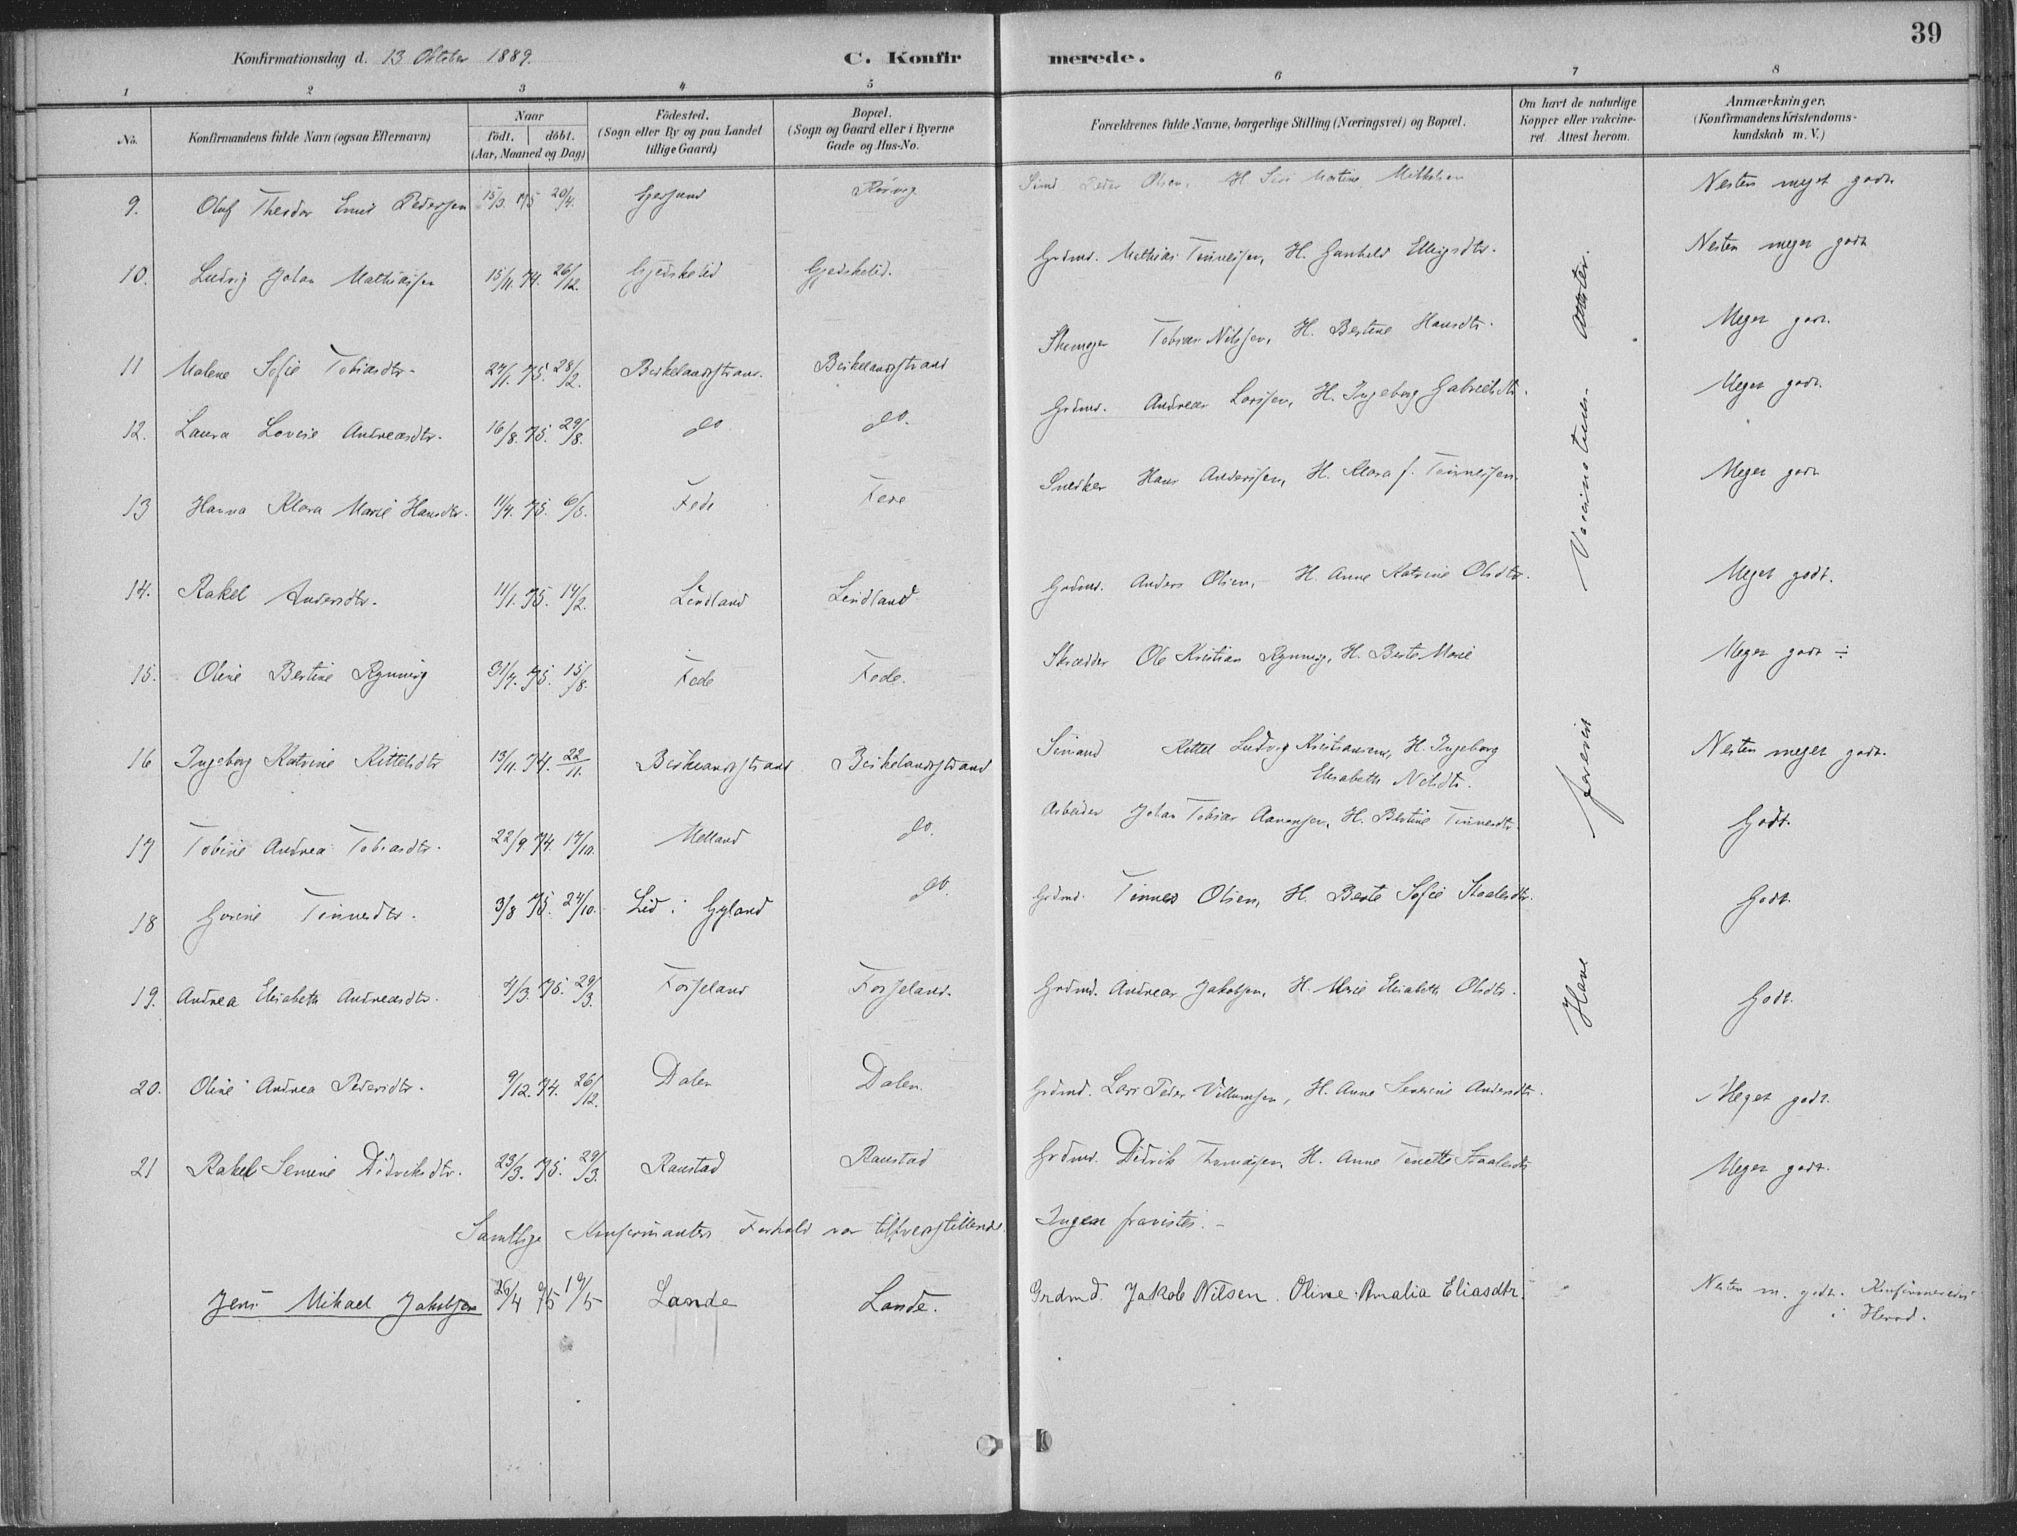 39
Konfirmationsdag d. 13 Oktober 1889.
C. Konfirmerede.
1 2 3 4 5 6 7 8
No.
Konfirmandens fulde Navn (ogsaa Efternavn)
Naar
födt. döbt.
(Aar, Maaned og Dag)
Födested.
(Sogn eller By og paa Landet
tillige Gaard)
Bopæl.
(Sogn og Gaard eller i Byerne
Gade og Hus-No.
Forældrenes fulde Navne, borgerlige Stilling (Næringsvei) og Bopæl.
Om havt de naturlige
Kopper eller vakcine-
ret. Attest herom.
Anmærkninger.
(Konfirmandens Kristendoms-
kundskab m. V.)
9. Oluf Theodor Emil Pedersen 15/3. 75 20/4. Peder Olsen, H. Martine Mikkelsen Nesten meget godt
10. Ludvig Johan Mathiassen 15/11. 74. 26/12. Gjedskelid Gjedskelid. Grdmd. Mathias Tønnessen, H. Gunhild Ellingsdtr. Nesten meget godt
11 Malene Sofie Tobiasdtr. 27/1. 75. 28/2. Birkelandsstrand. Birkelandsstrand Tobias Nilssen, H. Bertine Hansdtr. Meget godt.
12. Laura Lovise Andreasdtr. 16/8. 75. 29/8. do. do. Grdmd. Andreas Larssen, H. Ingeborg Gabrielsdtr. Meget godt.
13 Hanna Klara Marie Hansdtr. 11/4. 75. 6/5. Fede Fede Snedker Hans Anderssen, H. Klara f. Tønnessen. Meget godt
14. Rakel Andersdtr. 11/1. 75. 14/2. Lindland Lindland Grdmd. Anders Olsen, H. Anne Katrine Olsdtr. Meget godt.
15. Oline Bertine Rynning 31/7. 75. 15/8. Fede Fede. Skrædder Ole Kristian Rynning, H. Berte Marie Meget godt ÷
16 Ingeborg Katrine Kittelsdtr 13/11. 74. 22/11. Birkelandsstrand Birkelandsstrand Sømand Kittel Ludvig Kristiansen, H. Ingeborg
Elisabeth Nilsdtr. Nesten meget godt.
17 Tobine Andrea Tobiasdtr. 22/9 74. 17/10. Melland do. Arbeider Johan Tobias Aanensen, H. Bertine Tønnesdtr. Godt.
18 Gurine Tønnesdtr. 3/8 75. 24/10. Lid i Gyland do. Grdmd. Tønnes Olsen, H. Berte Sofie Staalesdtr. Godt.
19. Andrea Elisabeth Andreasdtr. 4/3. 75. 29/3. Fosseland Fosseland. Grdmd. Andreas Jakobsen, H. Marie Elisabeth Olsdtr. Godt.
20. Oline Andrea Pedersdtr. 9/12. 74. 26/12. Dalen Dalen. Grdmd. Lars Peder Villumsen, H. Anne Severine Andersdtr. Meget godt.
21 Rakel Semine Didriksdtr. 23/3. 75. 29/3. Raustad Raustad Grdmd. Didrik Thomassen, H. Anne Tonette Staalesdtr Meget godt.
Have forevist Vaccinations Attester.
Samtlige Konfirmanters Forhold var tilfredsstillende. Ingen fravistes. –
Jens Mikael Jakobsen 26/4 75 19/5 Lande Lande. Grdmd. Jakob Nilsen. Oline Amalia Eliasdtr. Nesten m. godt. Konfirmeredes
i Herad.